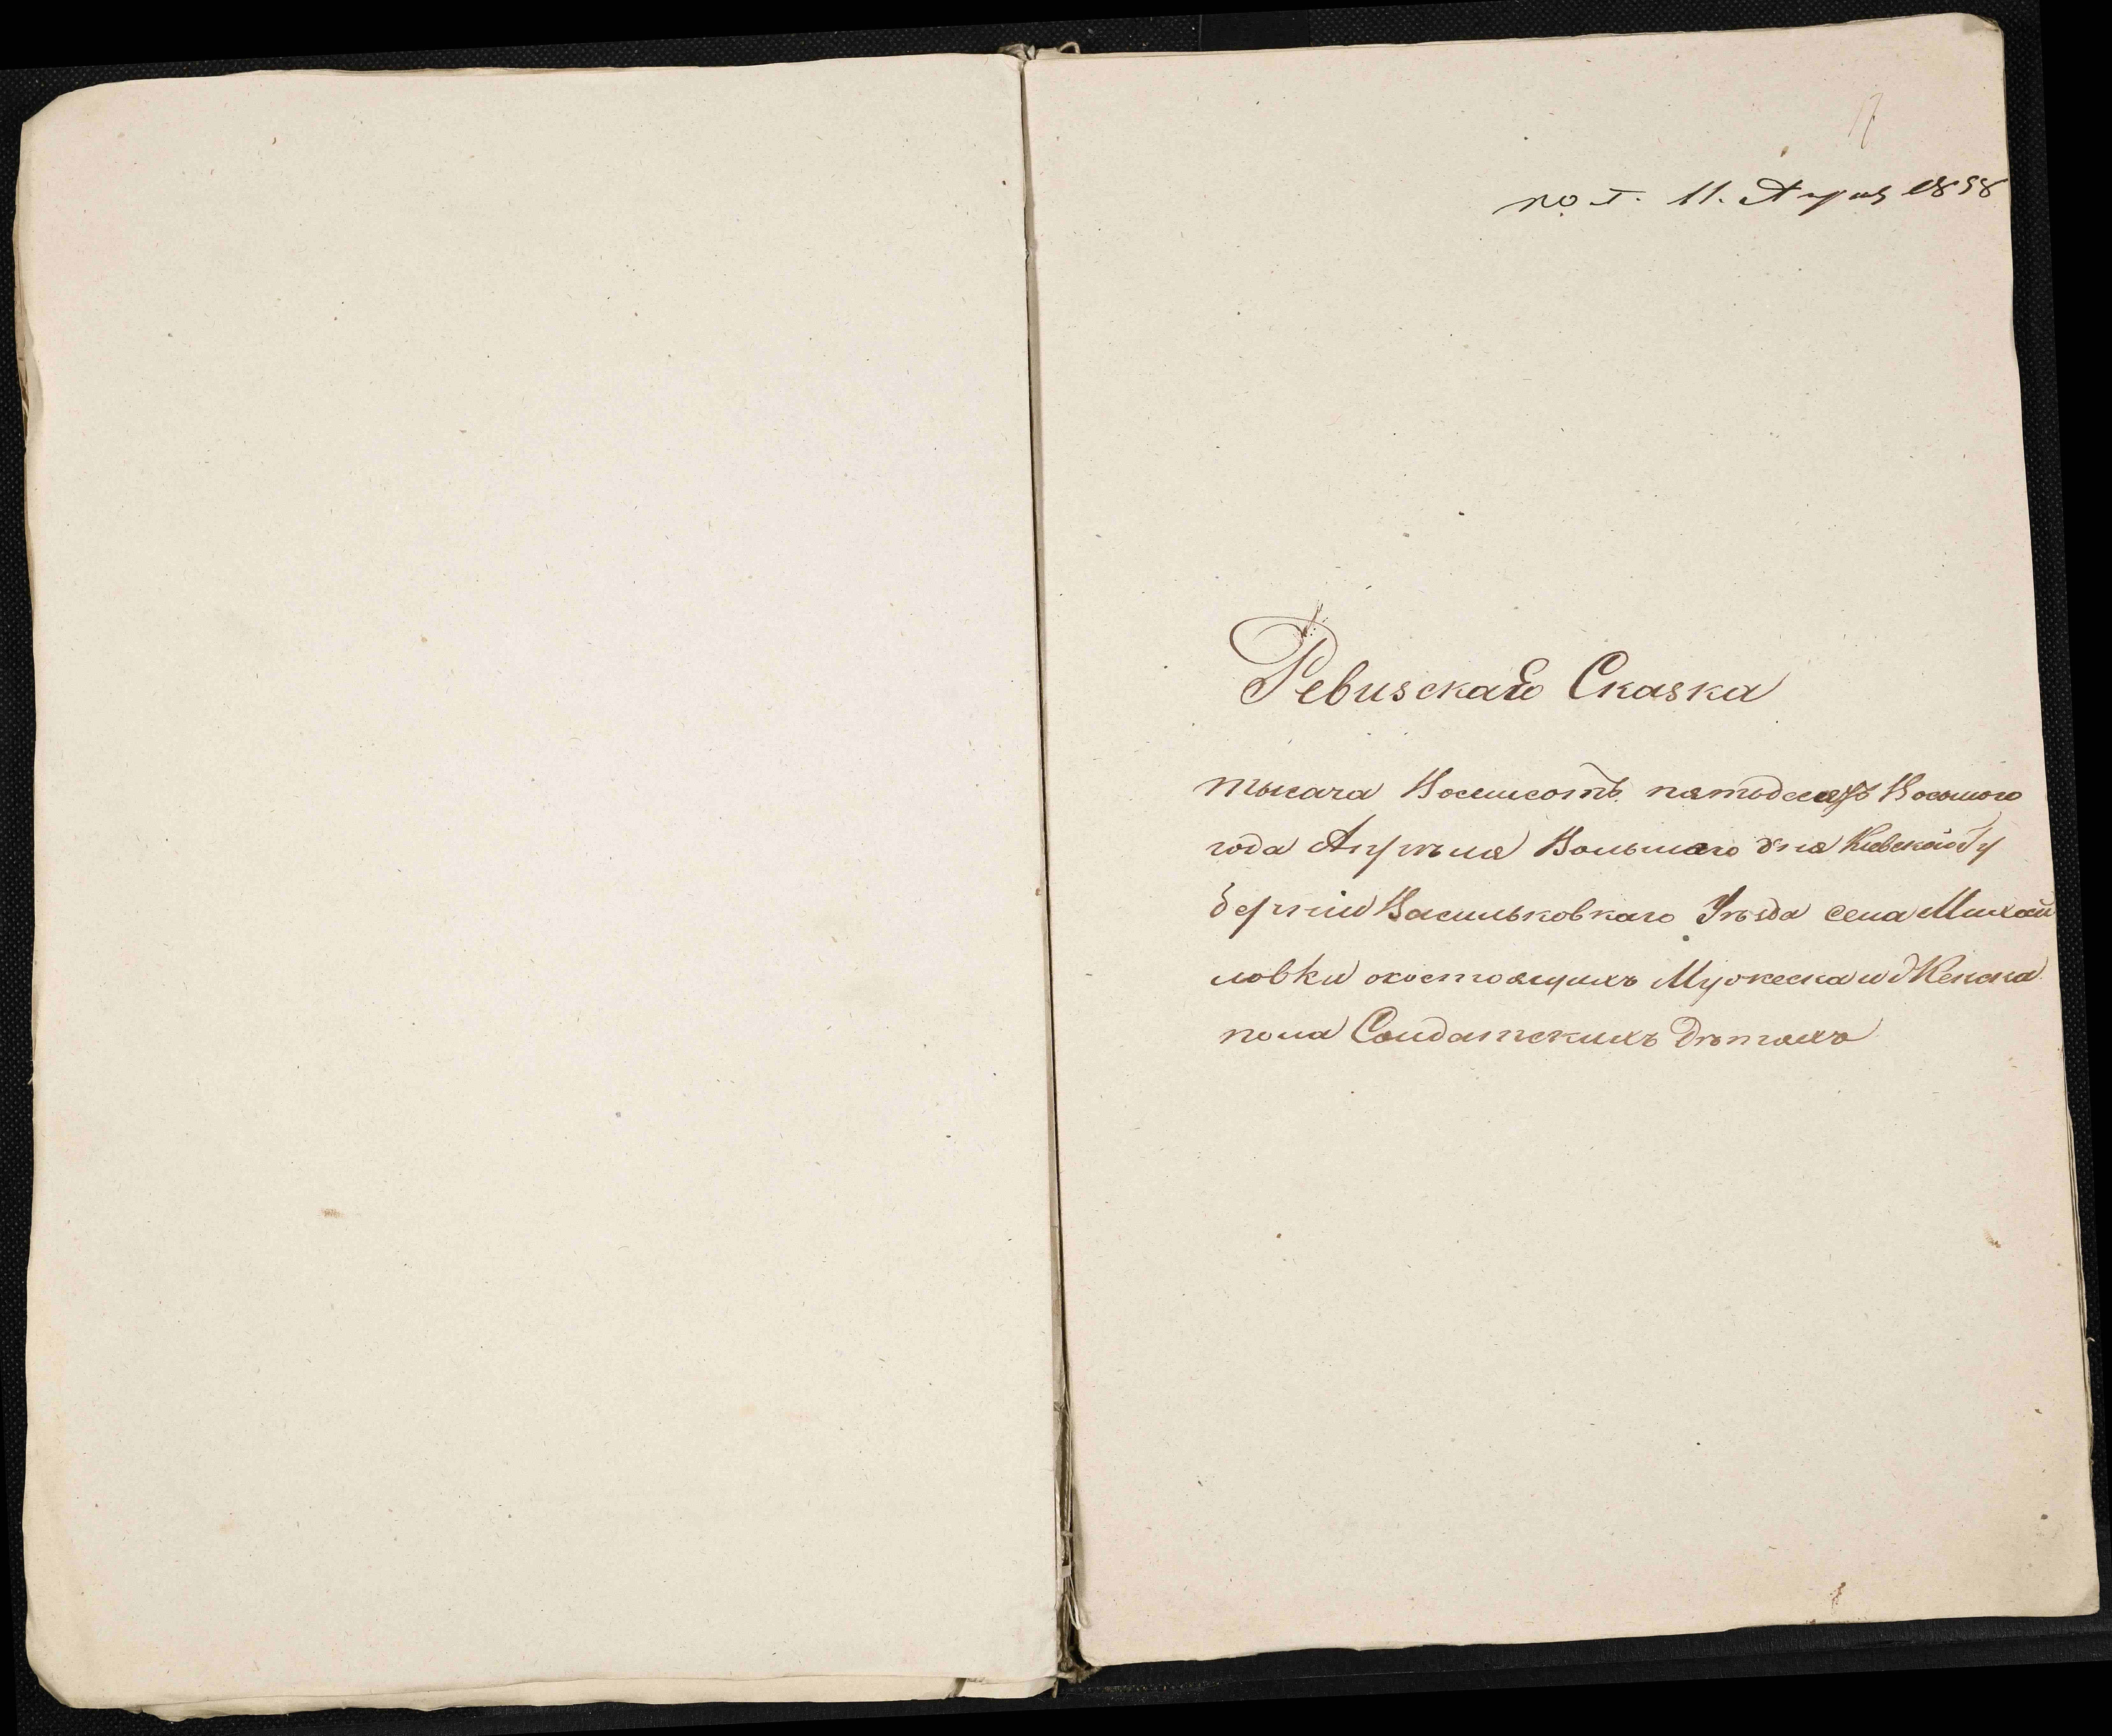 17
11. Апреля 1858
Ревизская Сказка
тысяча Восемсотъ пятьдесятъ Восьмого
года Апрѣля Восьмаго дня Кіевской Гу
берніи Васильковкаго Уѣзда села Михай
ловки осостоящихъ Мужеска и Женска
пола Солдатскихъ Дѣтяхъ